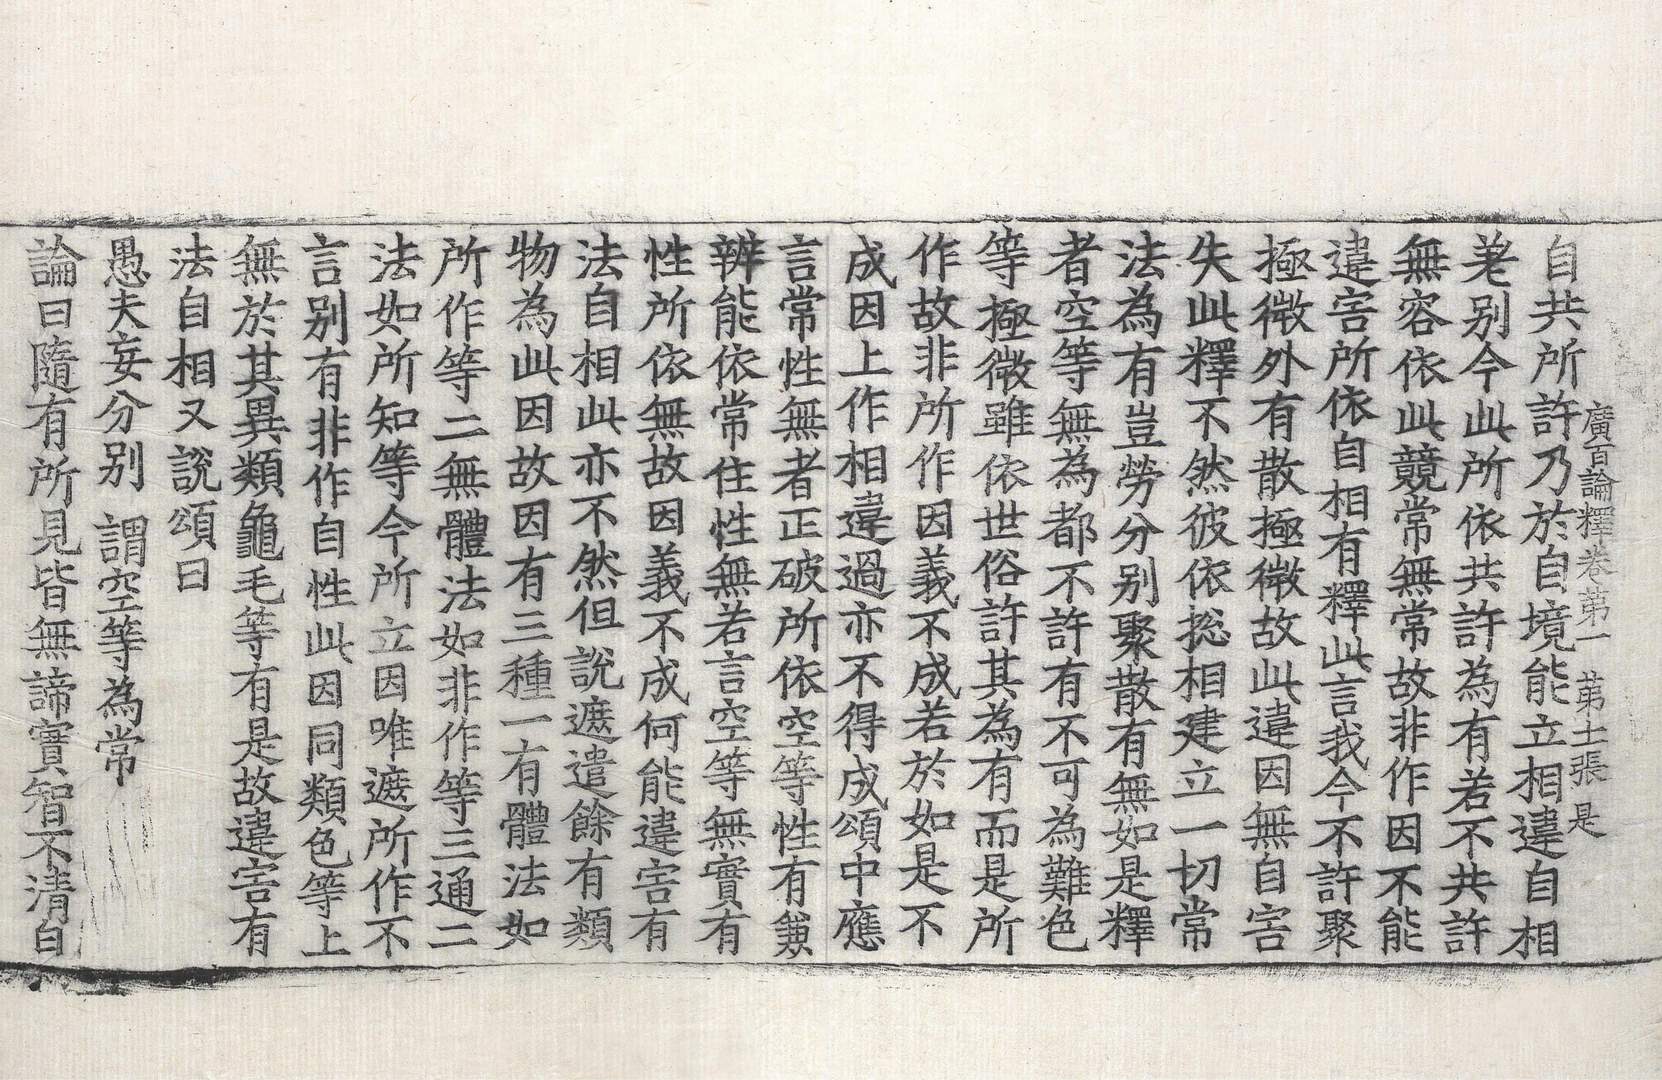 廣百論釋卷第一　第十一張　是
自共所許乃於自境能立相違自相
差别今此所依共許為有若不共許
無容依此競常無常故非作因不能
違害所依自相有釋此言我今不許聚
極微外有散極微故此違因無自害
失此釋不然彼依捴相建立一切常
法為有豈勞分别聚散有無如是釋
者空等無為都不許有不可為難色
等極微雖依世俗許其為有而是所
作故非所作因義不成若於如是不
成因上作相違過亦不得成頌中應
言常性無者正破所依空等性有兼
辯能依常住性無若言空等無實有
性所依無故因義不成何能違害有
法自相此亦不然但說遮遣餘有類
物為此因故因有三種一有體法如
所作等二無體法如非作等三通二
法如所知等今所立因唯遮所作不
言别有非作自性此因同類色等上
無於其異類龜毛等有是故違害有
法自相又說頌曰
愚夫妄分别　謂空等為常
論曰隨有所見皆無諦實智不清白